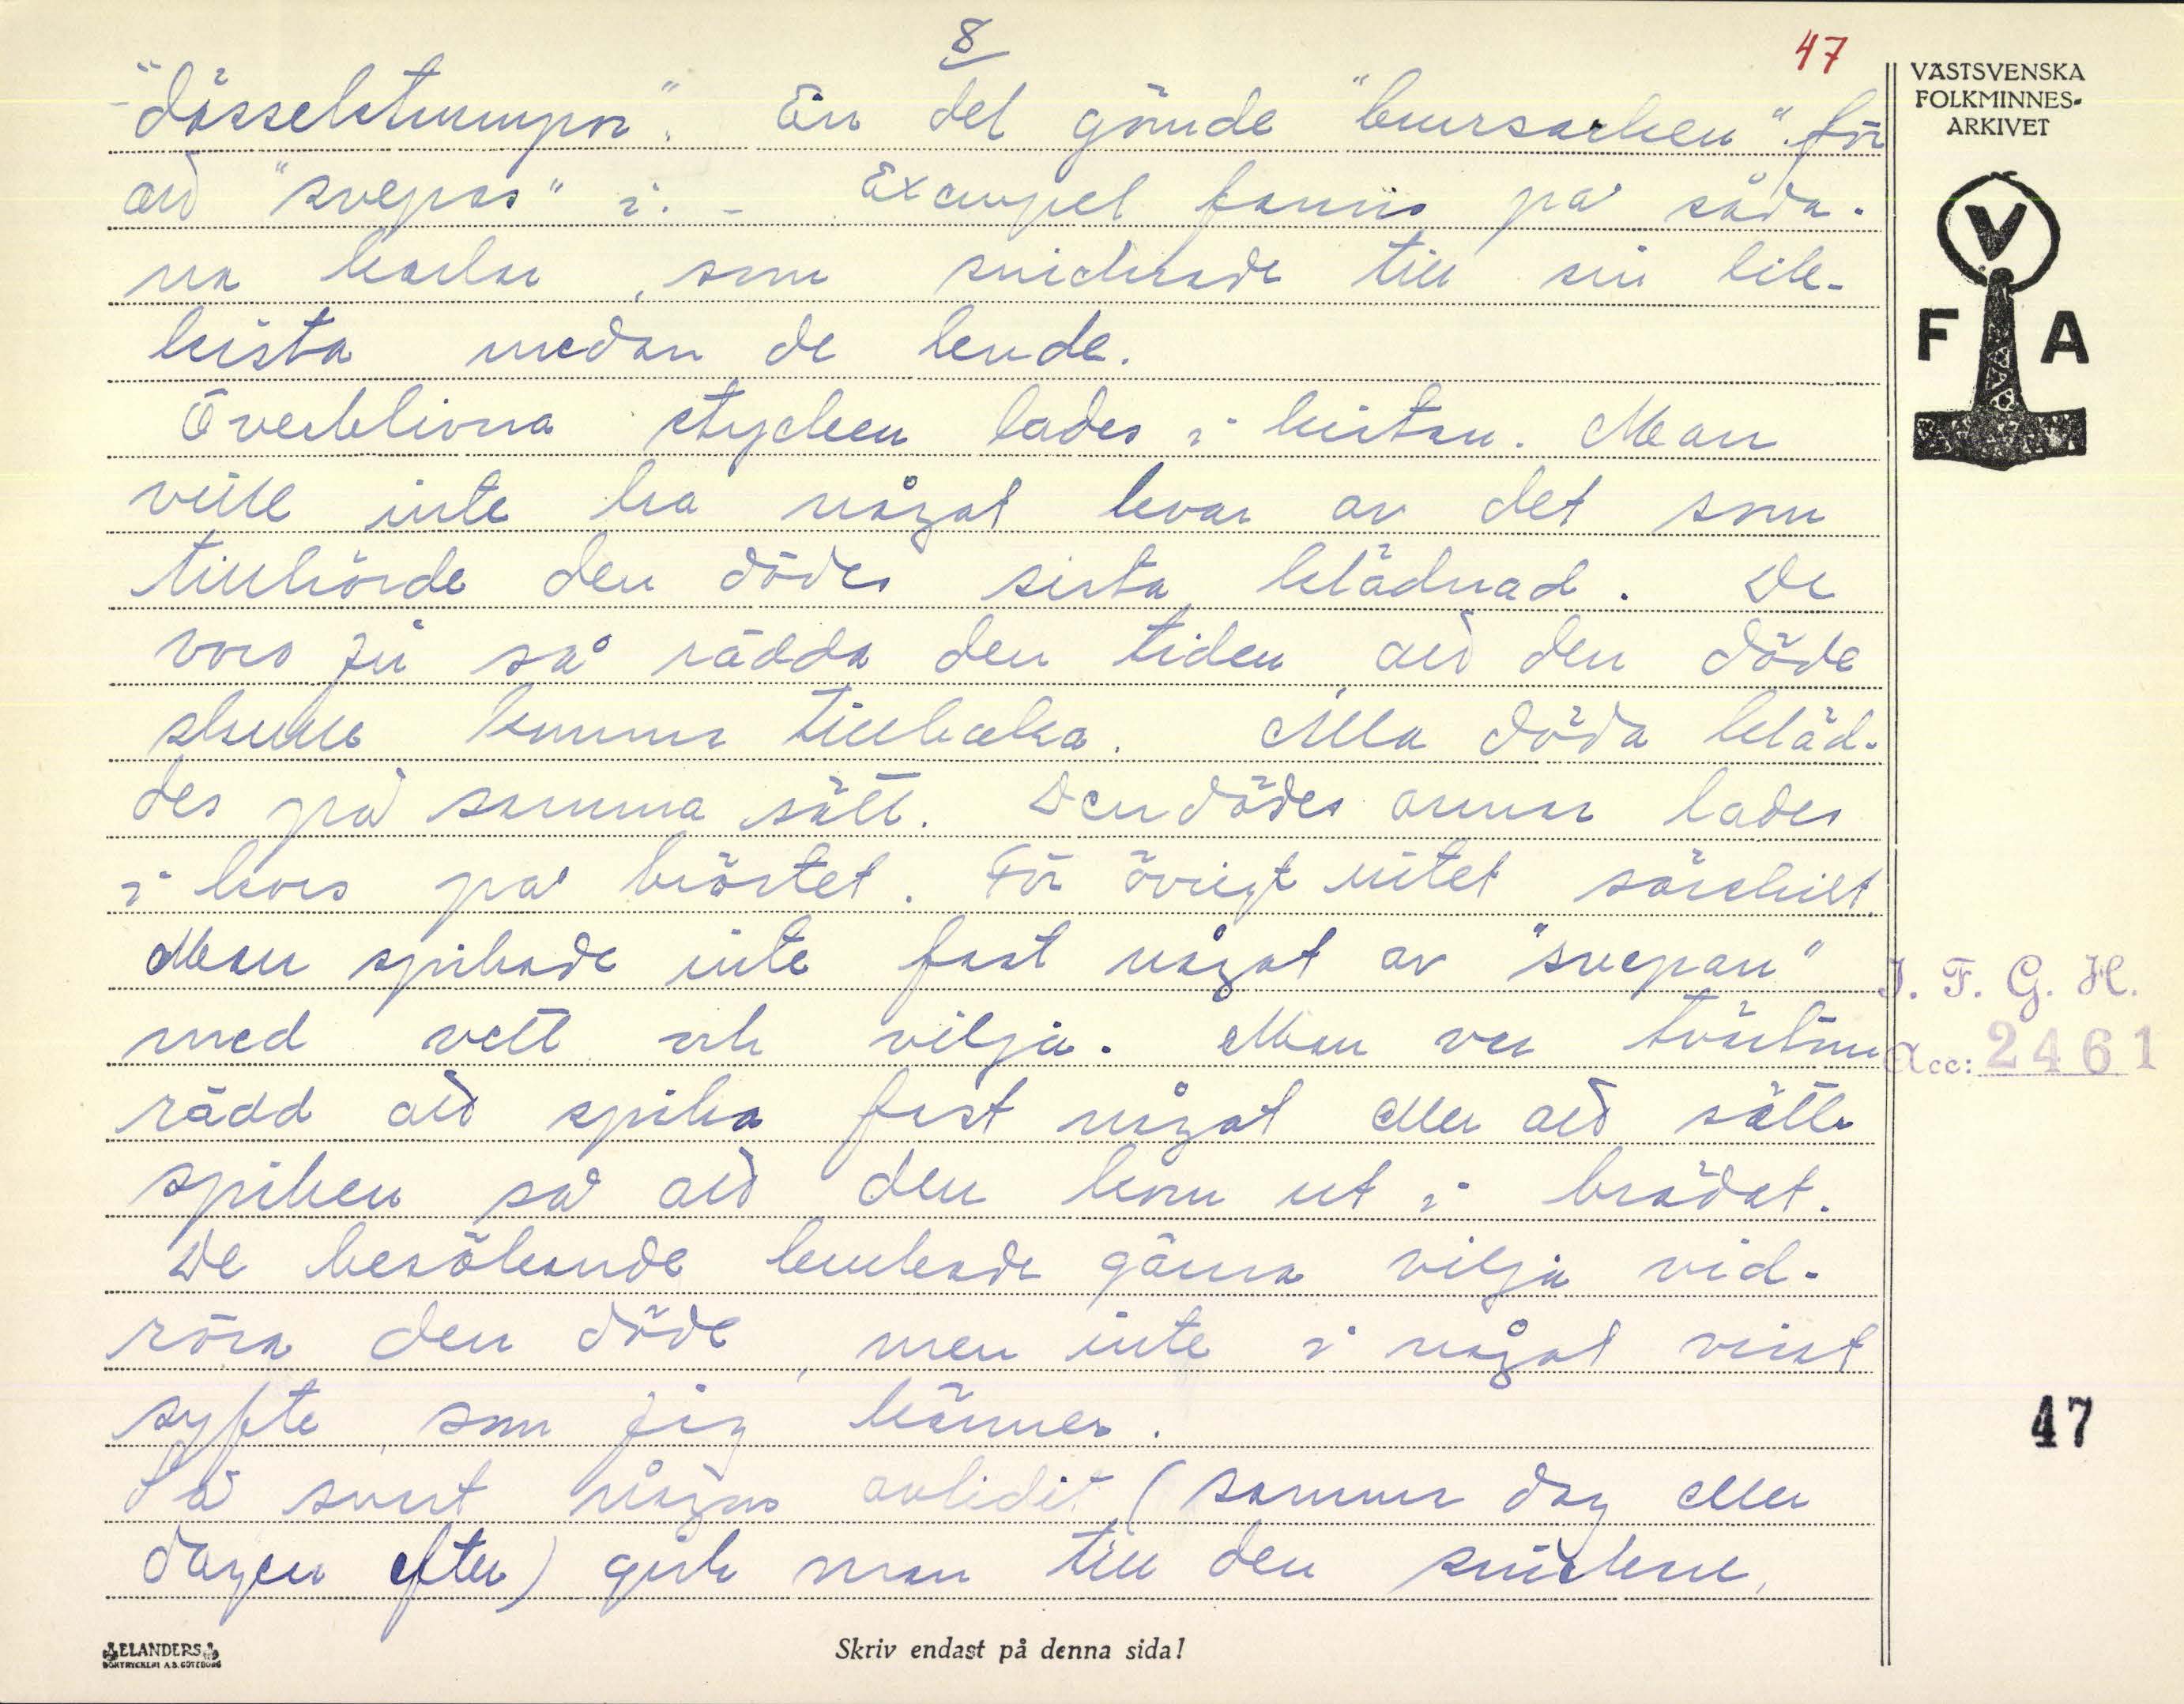 8
47
"dösselstrumpor". En del gömde "brursarken" för
att "svepas" i. - Exempel fanns på såda-
na karlar, som snickrade till sin lik-
kista medan de levde.
Överblivna stycken lades i kistan. Man
ville inte ha något kvar av det som
tillhörde den dödes sista klädnad. De
voro ju så rädda den tiden, att den döde
skulle komma tillbaka. Alla döda kläd-
des på samma sätt. Den dödes armar lades
i kors på bröstet. För övrigt intet särskilt.
Man spikade inte fast något av "svepan"
med vett och vilja. Man var tvärtom
rädd att spika fast något eller att sätta
spiken så att den kom ut i brädet.
De besökande brukade gärna vilja vid-
röra den döde, men inte i något visst
syfte, som jag känner.
Så snart någon avlidit (samma dag eller
dagen efter) gick man till den snickare,
VÄSTSVENSKA
FOLKMINNES-
ARKIVET
V
F A
I. F. G. H.
Acc: 2461
47
ELANDERS
BOKTRYCKERI A.B. GÖTEBORG
Skriv endast på denna sida!